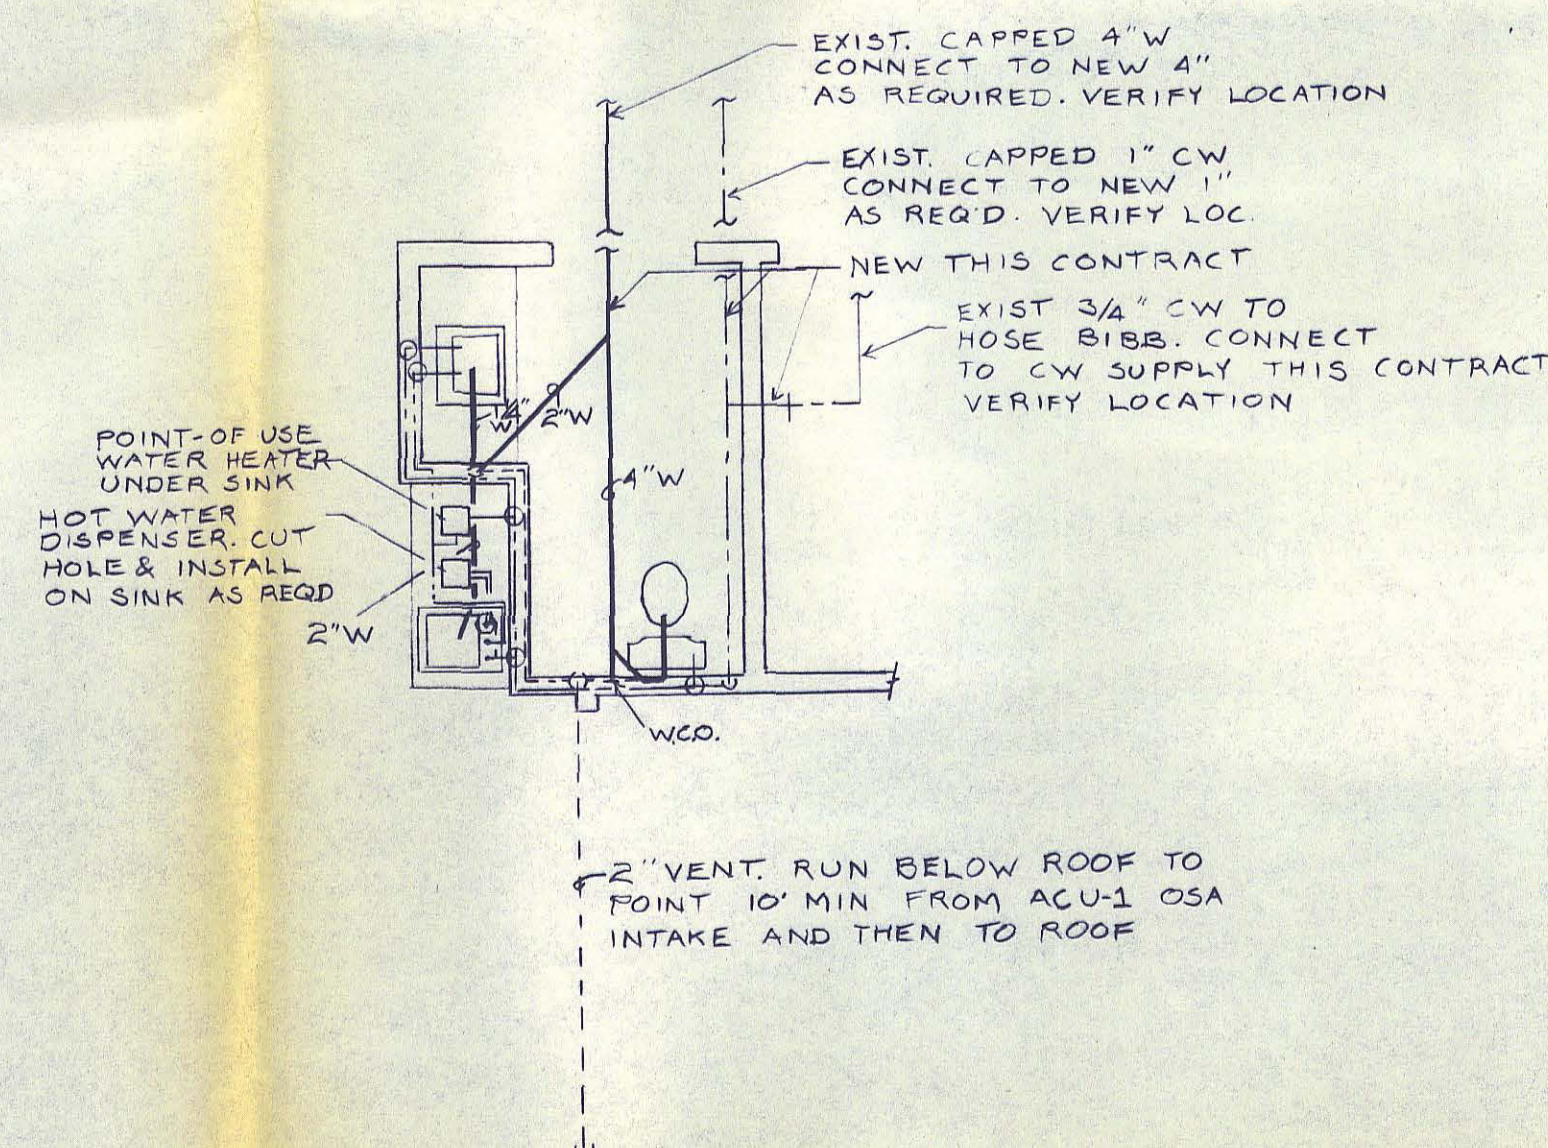 EXIST. CAPPED 4"W
CONNECT TO NEW 4"
AS REQUIRED. VERIFY LOCATION
EXIST. CAPPED 1" CW
CONNECT TO NEW 1"
AS REQ'D. VERIFY LOC.
NEW THIS CONTRACT
EXIST 3/4" CW TO
HOSE BIBB. CONNECT
TO CW SUPPLY THIS CONTRACT
VERIFY LOCATION
4"
W
2"W
POINT-OF USE
WATER HEATER
UNDER SINK
4"W
HOT WATER
DISPENSER. CUT
HOLE & INSTALL
ON SINK AS REQD
2"W
W.C.O.
2" VENT. RUN BELOW ROOF TO
POINT 10' MIN FROM ACU-1 OSA
INTAKE AND THEN TO ROOF